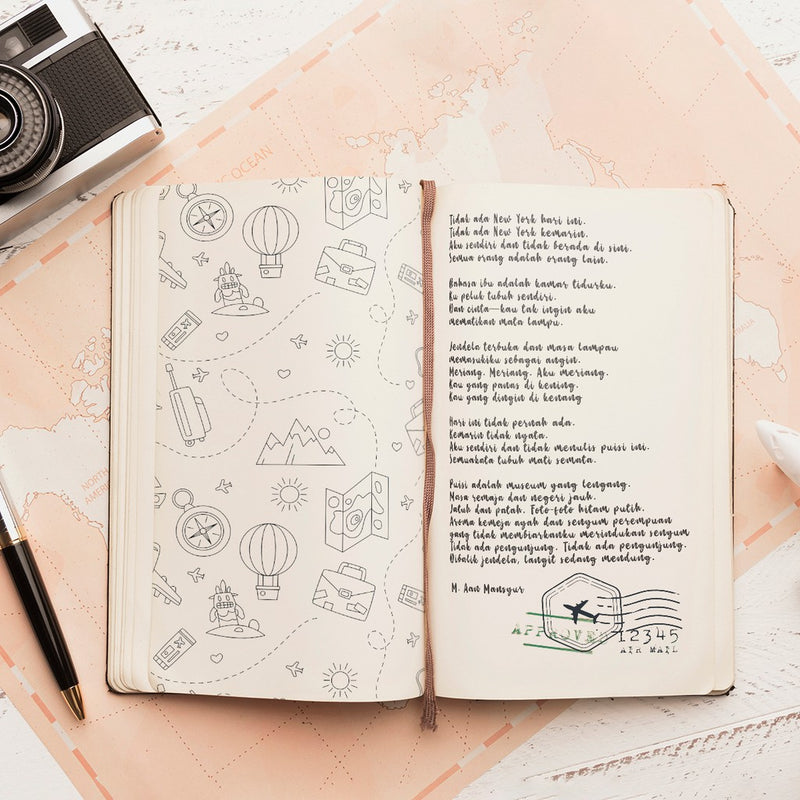 OCEAN
ASIA
NORTH
AMERICA
Tidak ada New York hari ini.
Tidak ada New York kemarin.
Aku sendiri dan tidak berada di sini.
Semua orang adalah orang lain.
Bahasa ibu adalah kamar tidurku.
Ku peluk tubuh sendiri.
Dan cinta—kau tak ingin aku
mematikan mata lampu.
Jendela terbuka dan masa lampau
memasukiku sebagai angin.
Meriang. Meriang. Aku meriang.
Kau yang panas di kening.
Kau yang dingin di kenang
Hari ini tidak pernah ada.
Kemarin tidak nyata.
Aku sendiri dan tidak menulis puisi ini.
Semuakata tubuh mati semata.
Puisi adalah museum yang lengang.
Masa remaja dan negeri jauh.
Jatuh dan patah. Foto-foto hitam putih.
Aroma kemeja ayah dan senyum perempuan
yang tidak membiarkanku merindukan senyum
Tidak ada pengunjung. Tidak ada pengunjung.
Dibalik jendela, langit sedang mendung.
M. Aan Mansyur
APPROVED
12345
AIR MAIL